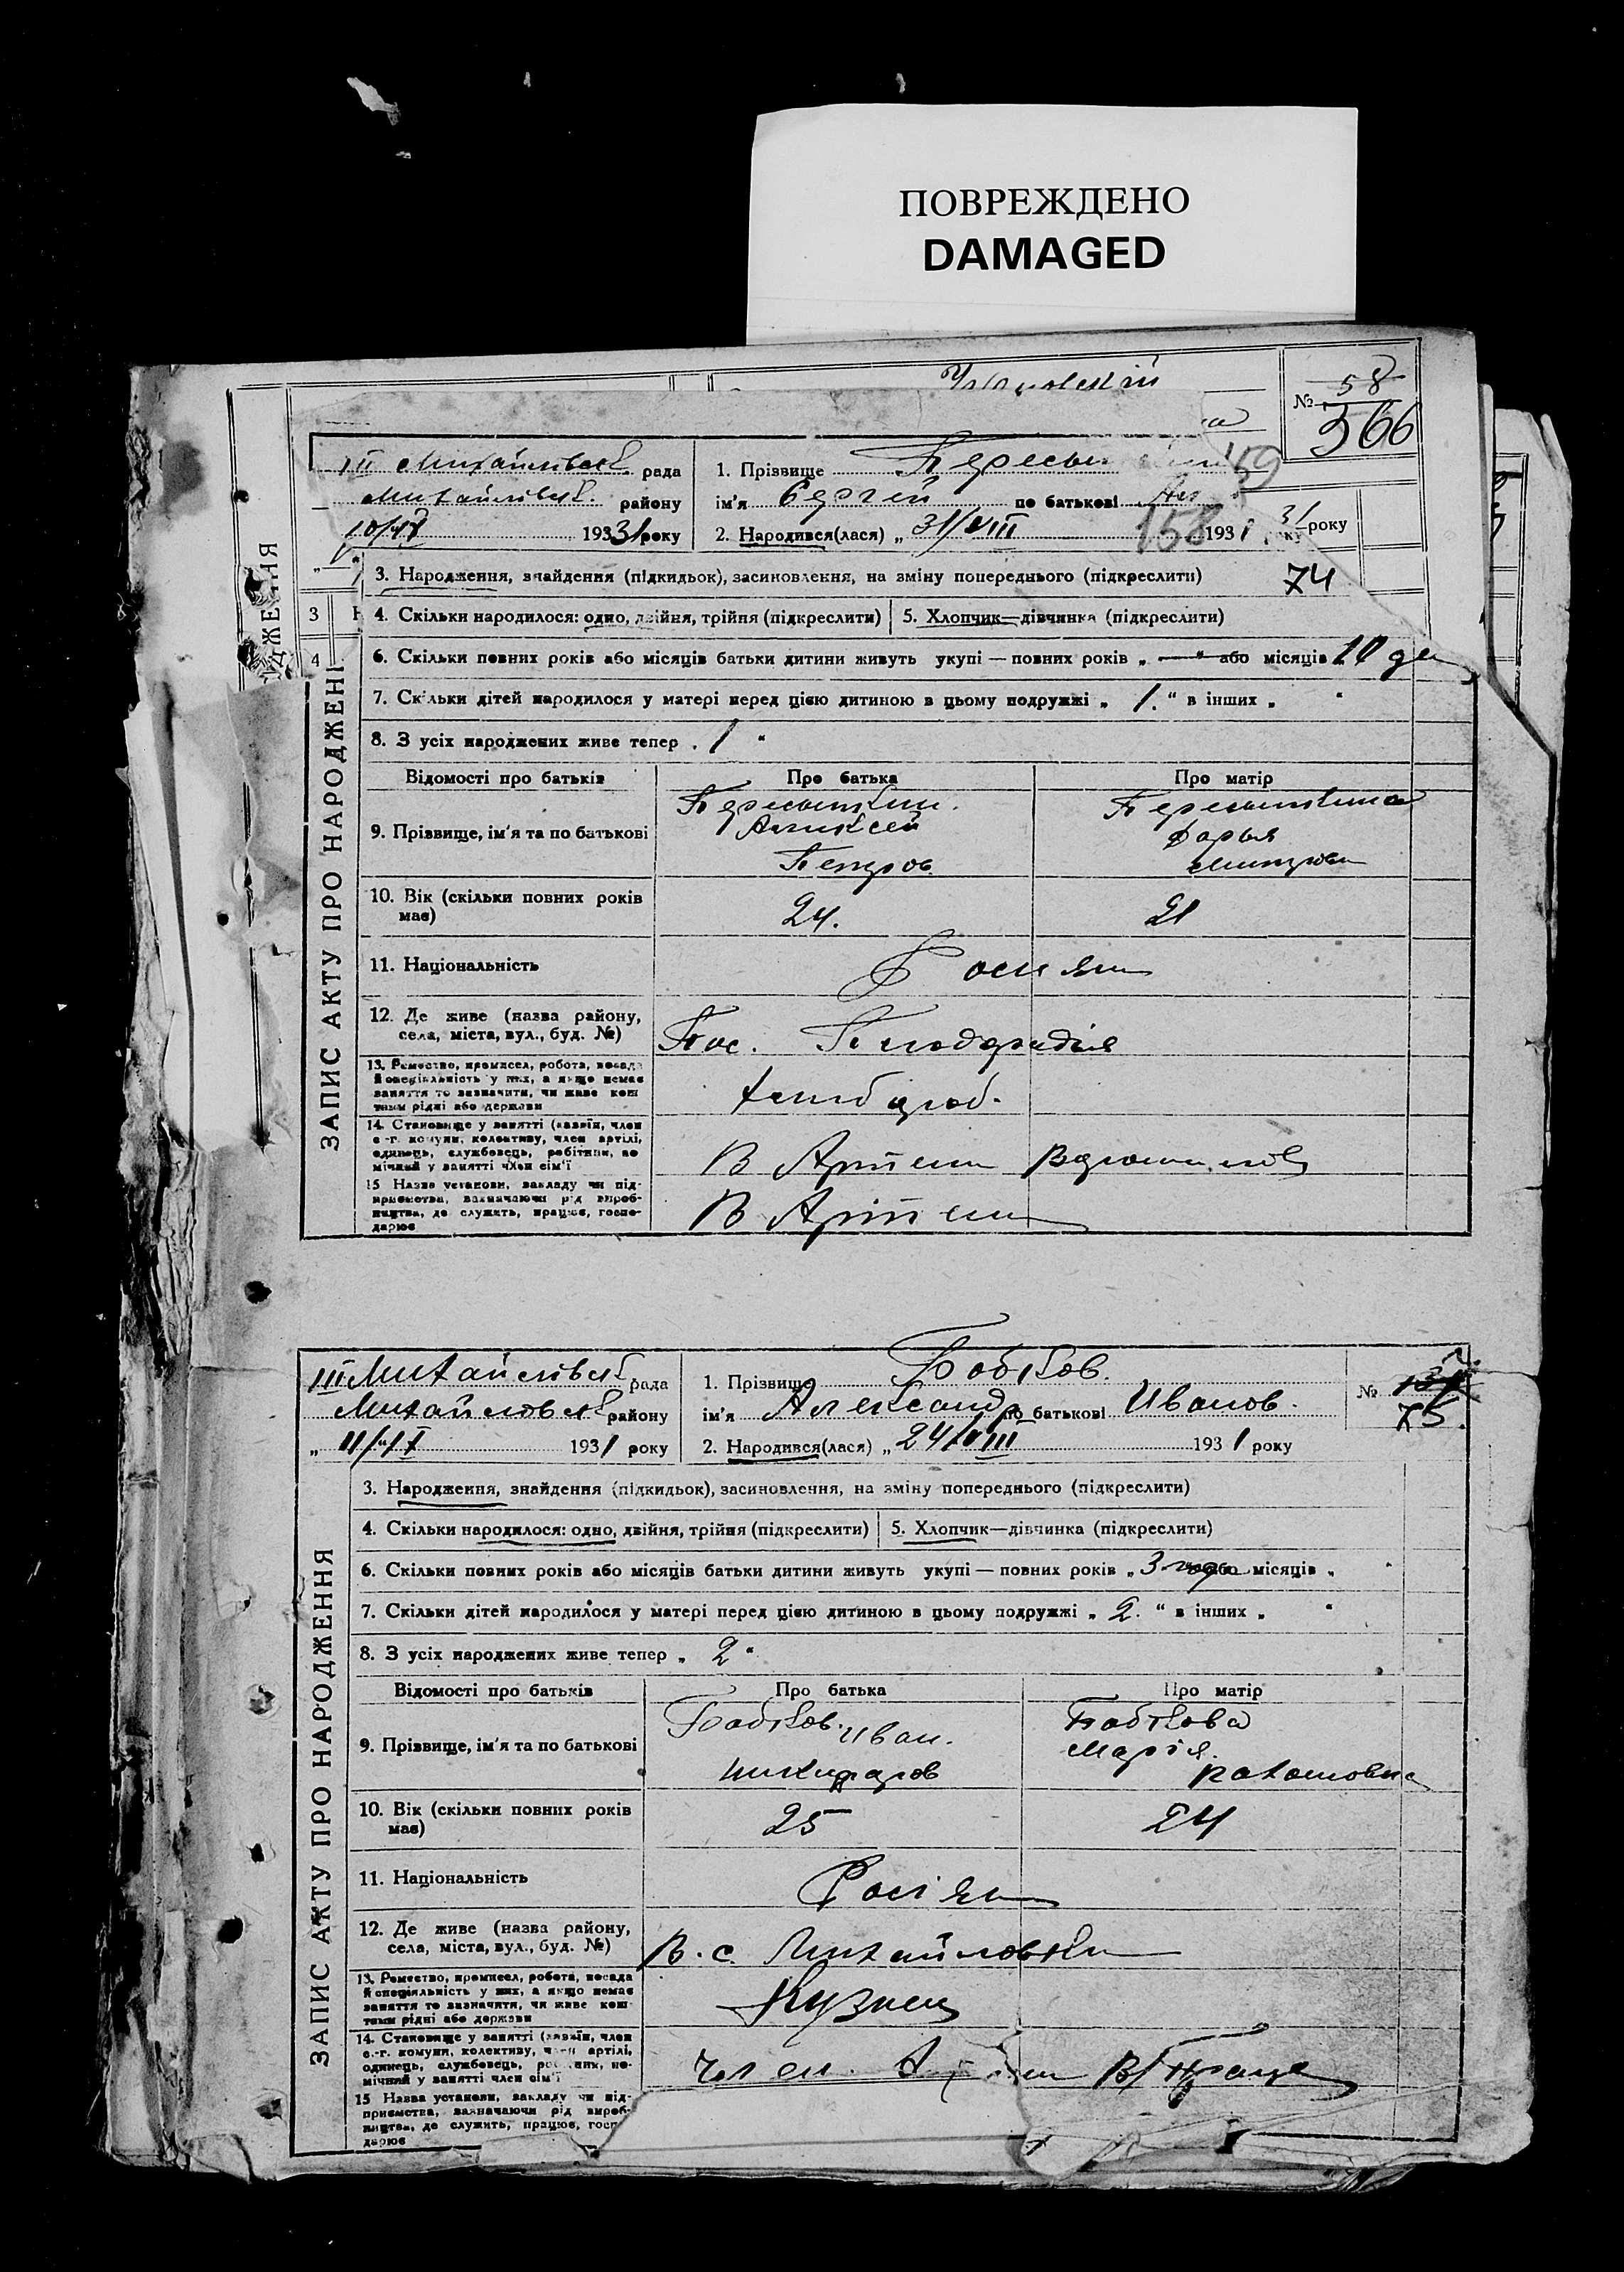 ПОВРЕЖДЕНО
DAMAGED
№ 58
366
III Михайлівськ рада
Михайлівськ. району
1931 року
1. Прізвище Пересып
59
ім'я Сергей по батькові Ал
2. Народився(лася) „ 31/VIII 1931
158
31 року
3. Народження, знайдення (підкидьок), засиновлення, на зміну попереднього (підкреслити) 74
4. Скільки народилося: одно, двійня, трійня (підкреслити) 5. Хлопчик—дівчинка (підкреслити)
6. Скільки повних років або місяців батьки дитини живуть укупі — повних років „ — “ або місяців 10
7. Скільки дітей народилося у матері перед цією дитиною в цьому подружжі „ 1. “ в інших „ “
8. З усіх народжених живе тепер „ 1 “
ЗАПИС АКТУ ПРО НАРОДЖЕНН
Відомості про батьків Про батька Про матір
9. Прізвище, ім'я та по батькові
Пересыпкин. Пересыпкина
Алексей Дарья
Петров
10. Вік (скільки повних років має) 24. 21
11. Національність Росияни
12. Де живе (назва району, села, міста, вул., буд. №) Пос.
13. Ремество, промисел, робота, посада й спеціяльність у них, а якщо немає заняття то зазначити, чи живе коштами рідні або держави хлібороб.
14. Становище у занятті (хазяїн, член с.-г. комуни, колективу, член артілі, одинець, службовець, робітник, помічний у занятті член сім'ї В Артели Ворошилов
15 Назва установи, закладу чи підприємства, зазначаючи рід виробництва, де служить, працює, господарює В Артели
III Михайлівськ рада
Михайловськ району
„ 11/IX 1931 року
1. Прізвище Бобков.
ім'я Александ по батькові Иванов.
2. Народився(лася) „ 24/VIII 1931 року
№
75.
3. Народження, знайдення (підкидьок), засиновлення, на зміну попереднього (підкреслити)
4. Скільки народилося: одно, двійня, трійня (підкреслити) 5. Хлопчик—дівчинка (підкреслити)
6. Скільки повних років або місяців батьки дитини живуть укупі — повних років „ 3 года або місяців „ “
7. Скільки дітей народилося у матері перед цією дитиною в цьому подружжі „ 2. “ в інших „ “
8. З усіх народжених живе тепер „ 2 “
ЗАПИС АКТУ ПРО НАРОДЖЕННЯ
Відомості про батьків Про батька Про матір
9. Прізвище, ім'я та по батькові
Бобков. Иван. Бобкова
Марія.
Никифоров
10. Вік (скільки повних років має) 25 24
11. Національність Росіяни
12. Де живе (назва району, села, міста, вул., буд. №) В. с. Михайловки
13. Ремество, промисел, робота, посада й спеціяльність у них, а якщо немає заняття то зазначити, чи живе коштами рідні або держави Кузнец
14. Становище у занятті (хазяїн, член с.-г. комуни, колективу, член артілі, одинець, службовець, робітник, помічний у занятті член сім'ї Член.
15 Назва установи, закладу чи підприємства, зазначаючи рід виробництва, де служить, працює, господарює